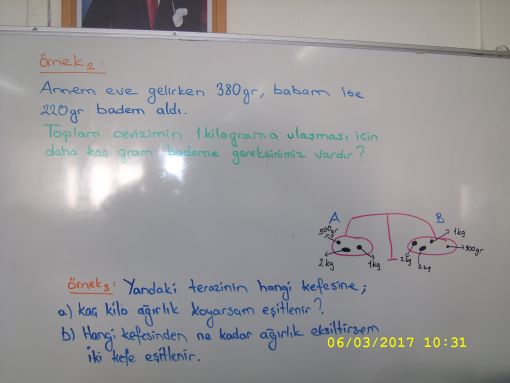 örnek2:
Annem eve gelirken 380gr, babam ise
220gr badem aldı.
Toplam cevizimin 1kilograma ulaşması için
daha kaç gram bademe gereksinimiz vardır?
A B
500gr 1kg
500gr
2kg 1kg 2kg 2kg
örnek3: Yandaki terazinin hangi kefesine;
a) kaç kilo ağırlık koyarsam eşitlenir?
b) Hangi kefesinden ne kadar ağırlık eksiltirsem
iki kefe eşitlenir.
06/03/2017 10:31